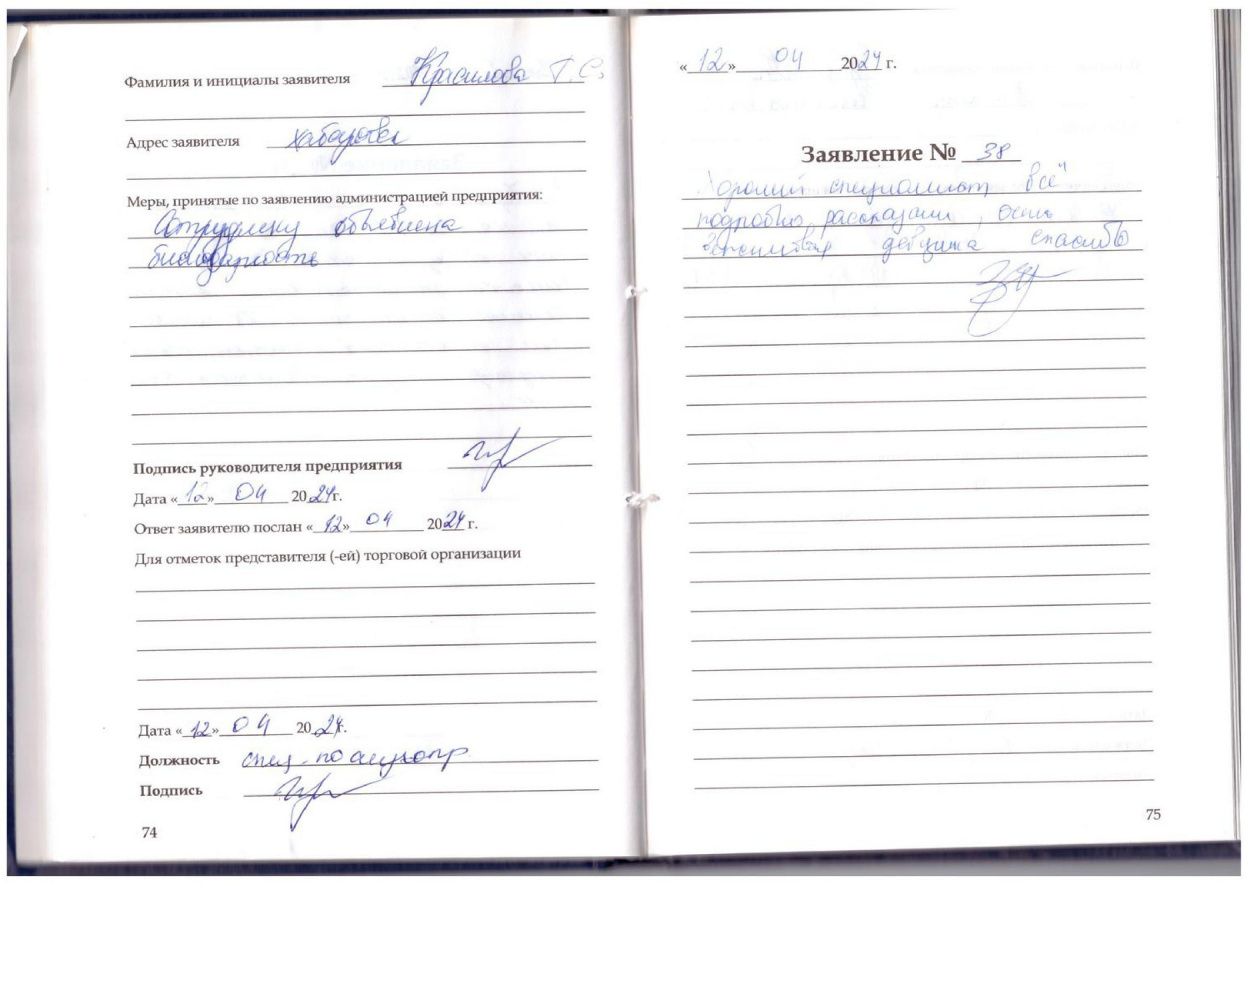 Фамилия и инициалы заявителя Красилова Т. С.
Адрес заявителя Хабаровск
Меры, принятые по заявлению администрацией предприятия:
Сотруднику объявлена
благодарность
Подпись руководителя предприятия
Дата «12» 04 2024г.
Ответ заявителю послан «12» 04 2024 г.
Для отметок представителя (-ей) торговой организации
Дата «12» 04 2024г.
Должность спец. по
Подпись
74
«12» 04 2024 г.
Заявление № 38
Хороший специалист, всё
подробно рассказали, очень
вежливая девушка спасибо
75